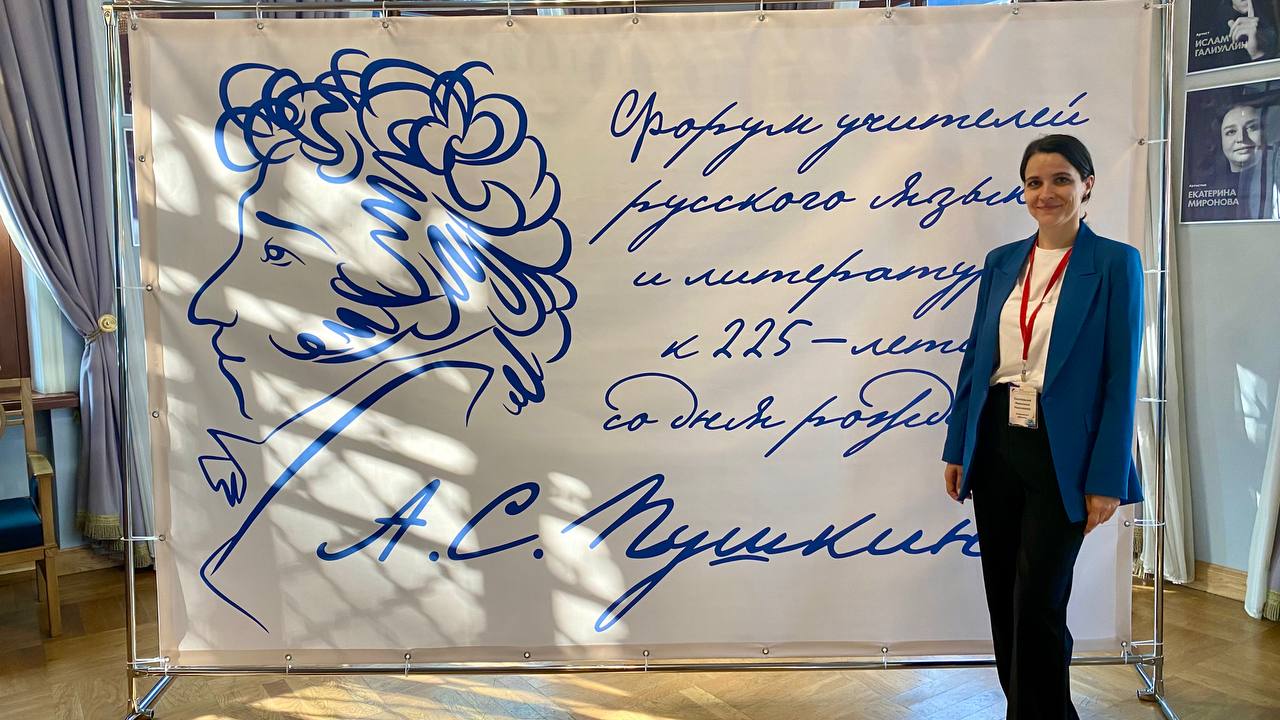 Форум учителей
русского язык
и литератур
к 225-лет
со дня рожд
А.С. Пушкин
Артист
ИСЛАМ
ГАЛИУЛЛИН
Артистка
ЕКАТЕРИНА
МИРОНОВА